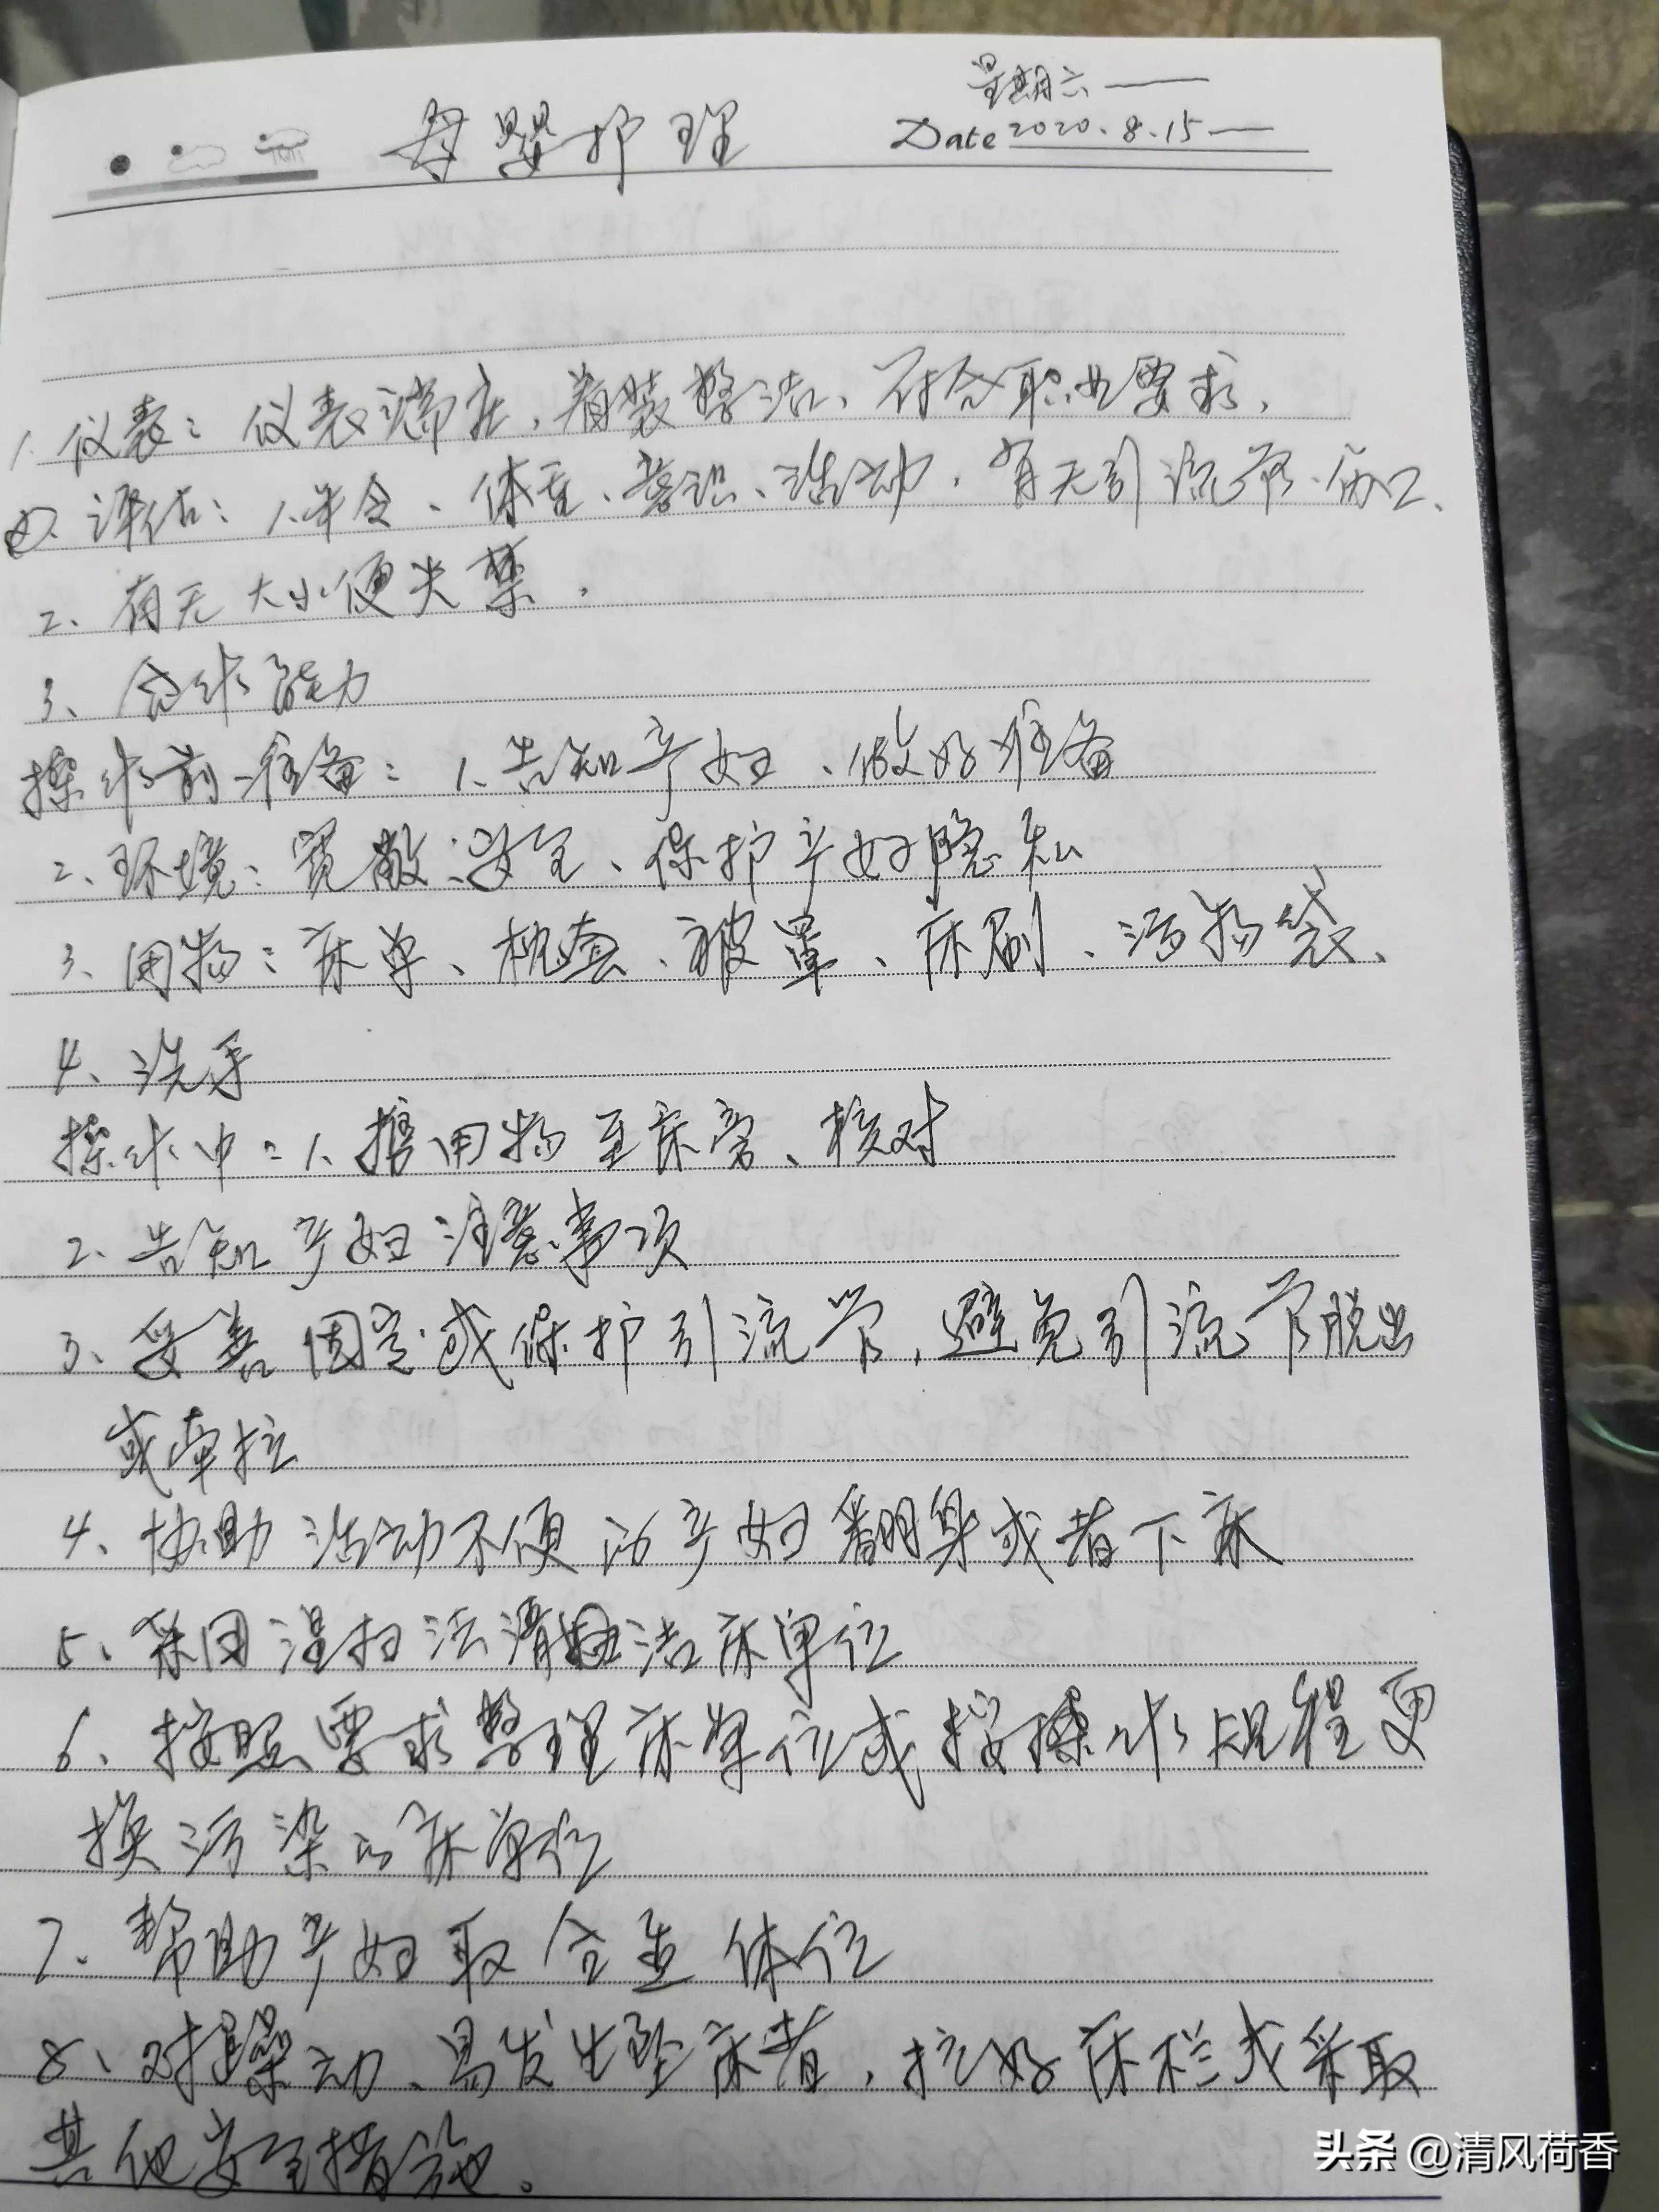 星期六
母婴护理
Date 2020.8.15
1.仪表：仪表端庄，着装整洁、符合职业要求，
2.评估：1.年令、体重、意识、活动，有无引流管、伤口、
2、有无大小便失禁.
3、合作能力
操作前准备：1.告知产妇、做好准备
2、环境：宽敞、安全、保护产妇隐私
3、用物：床单、枕套、被罩、床刷、污物袋、
4、洗手
操作中：1、携用物至床旁、核对
2、告知产妇注意事项
3、妥善固定或保护引流管，避免引流管脱出
或牵拉
4、协助活动不便的产妇翻身或者下床
5、采用湿扫法清洁床单位
6、按照要求整理床单位或按操作规程更
换污染的床单位
7.帮助产妇取合适体位
8、对躁动、易发生坠床者，拉好床栏或采取
其他安全措施。
头条 @清风荷香